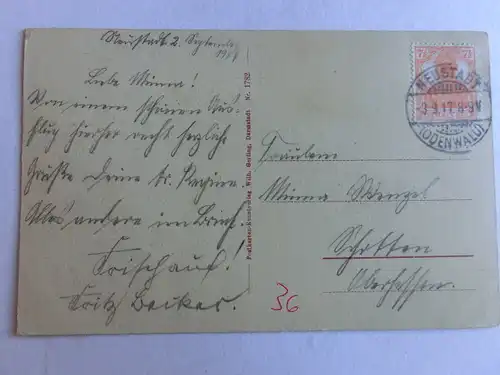 Neustadt 2. September
1917
Liebe Minna!
Von einem schönen Aus-
flug hierher recht herzliche
Grüße Deine tr. Regine
Alles andere im Brief.
Frisch auf!
Fritz Becker.
Postkarten-Kunstverlag Wilh. Gerling, Darmstadt Nr. 1782
7½ 7½
NEUSTADT
3.9.17. 8-9V
(ODENWALD)
Fräulein
Minna Wenzel
Schotten
Oberhessen.
36